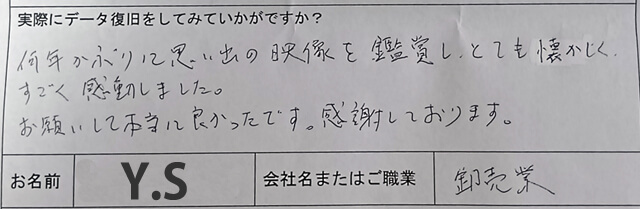 実際にデータ復旧をしてみていかがですか？
何年かぶりに思い出の映像を鑑賞し、とても懐かしく、
すごく感動しました。
お願いして本当に良かったです。感謝しております。
お名前 Y.S 会社名またはご職業 卸売業